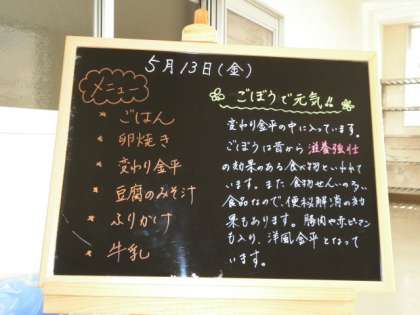 5月13日(金)
メニュー
ごはん
卵焼き
変わり金平
豆腐のみそ汁
ふりかけ
牛乳
ごぼうで元気!!
変わり金平の中に入っています。
ごぼうは昔から滋養強壮
の効果のある食べ物といわれて
います。また食物せんいの多い
食品なので、便秘解消の効
果もあります。豚肉や赤ピーマン
も入り、洋風金平となって
います。